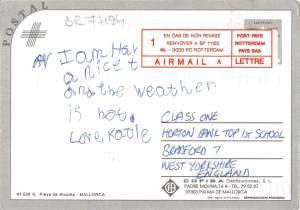 BR77494
POSTAL
EN CAS DE NON REMISE
1 RENVOYER A BP 7120
NL - 3000 PD ROTTERDAM
PORT PAYE
ROTTERDAM
PAYS BAS
AIRMAIL LETTRE
I am
a nice t
and the weather
is hot.
Love, Katie
CLASS ONE
HORTON BANK TOP 1ST SCHOOL
BRADFORD 7
WEST YORKSHIRE
ENGLAND
COFIBA Distribuciones, S. L.
PADRE MOLINA 14 A - TEL. 29 52 87
07005 PALMA DE MALLORCA
Playa de Alcudia - MALLORCA